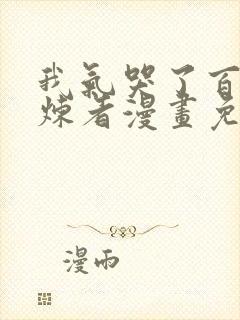 我氣哭了百
煉者漫畫免
漫雨